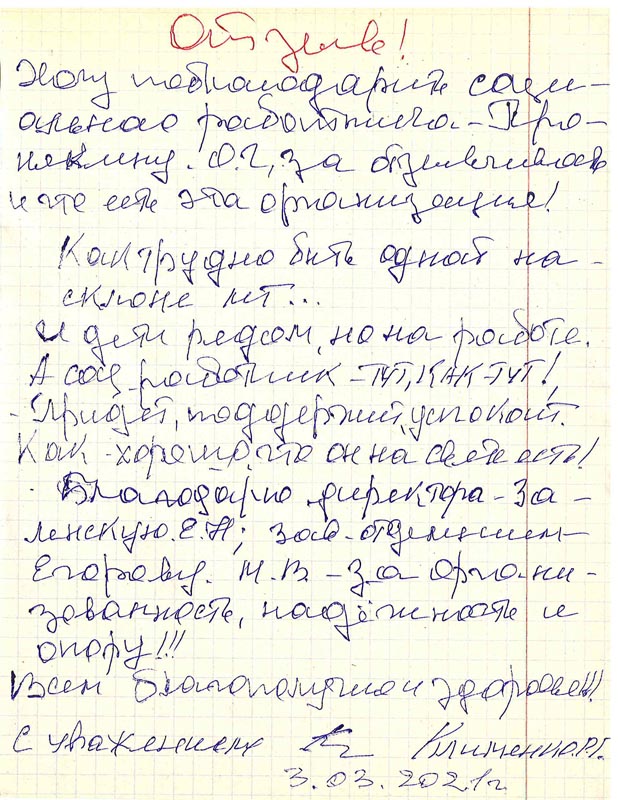 Отзыв!
Хочу поблагодарить соци-
ального работника - Про-
някину. О.Г, за отзывчивость
и что есть эта организация!
Как трудно быть одной на-
склоне лет...
И дети рядом, но на работе.
А соц работник - ТУТ, КАК-ТУТ!,
- Придёт, поддержит, успокоит.
Как - хорошо, что он на свете есть!
Благодарю директора - За-
ленскую. Е.Н; зав-отделением
Егорову. М.В - за органи-
зованность, надёжность и
опору!!!
Всем благополучия и здоровья!!!
С уважением Клименко.Р.Г.
3.03.2021г